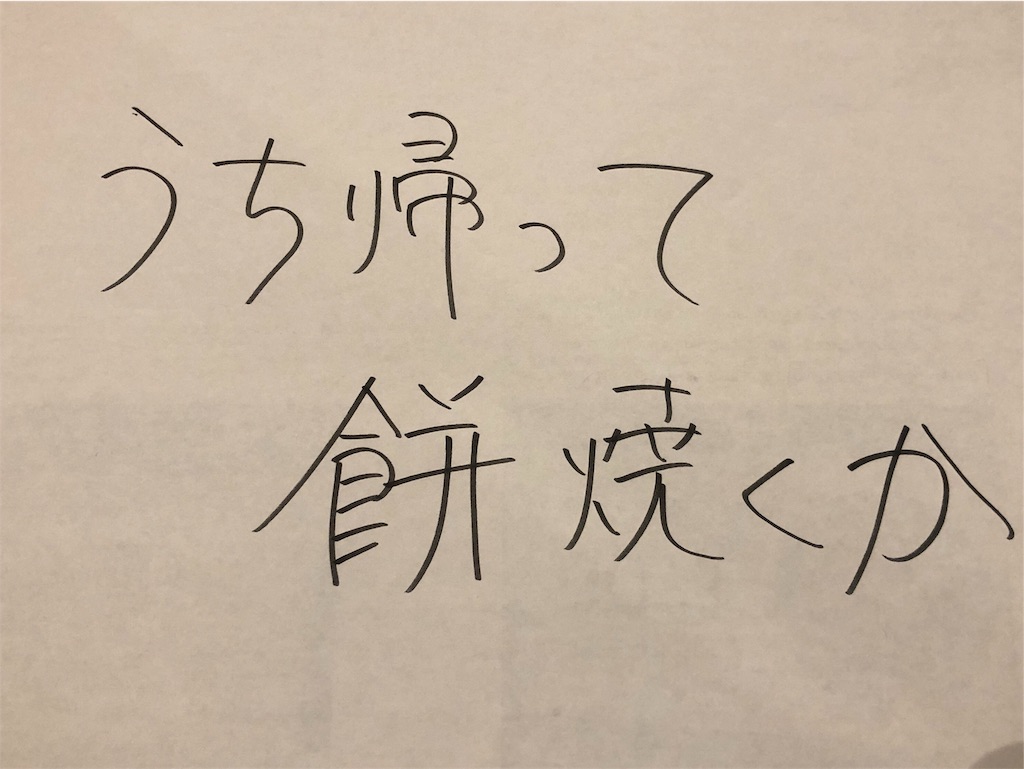 うち帰って
餅焼くか